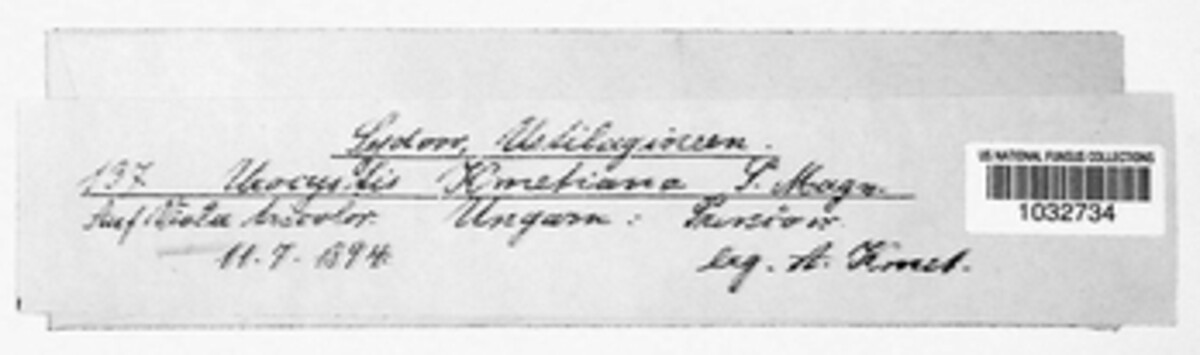 Sydow, Ustilagineen.
137 Urocystis Kmetiana P. Magn.
Auf Viola tricolor. Ungarn:
11.7.1894
leg. A. Kmet.
US NATIONAL FUNGUS COLLECTIONS
1032734